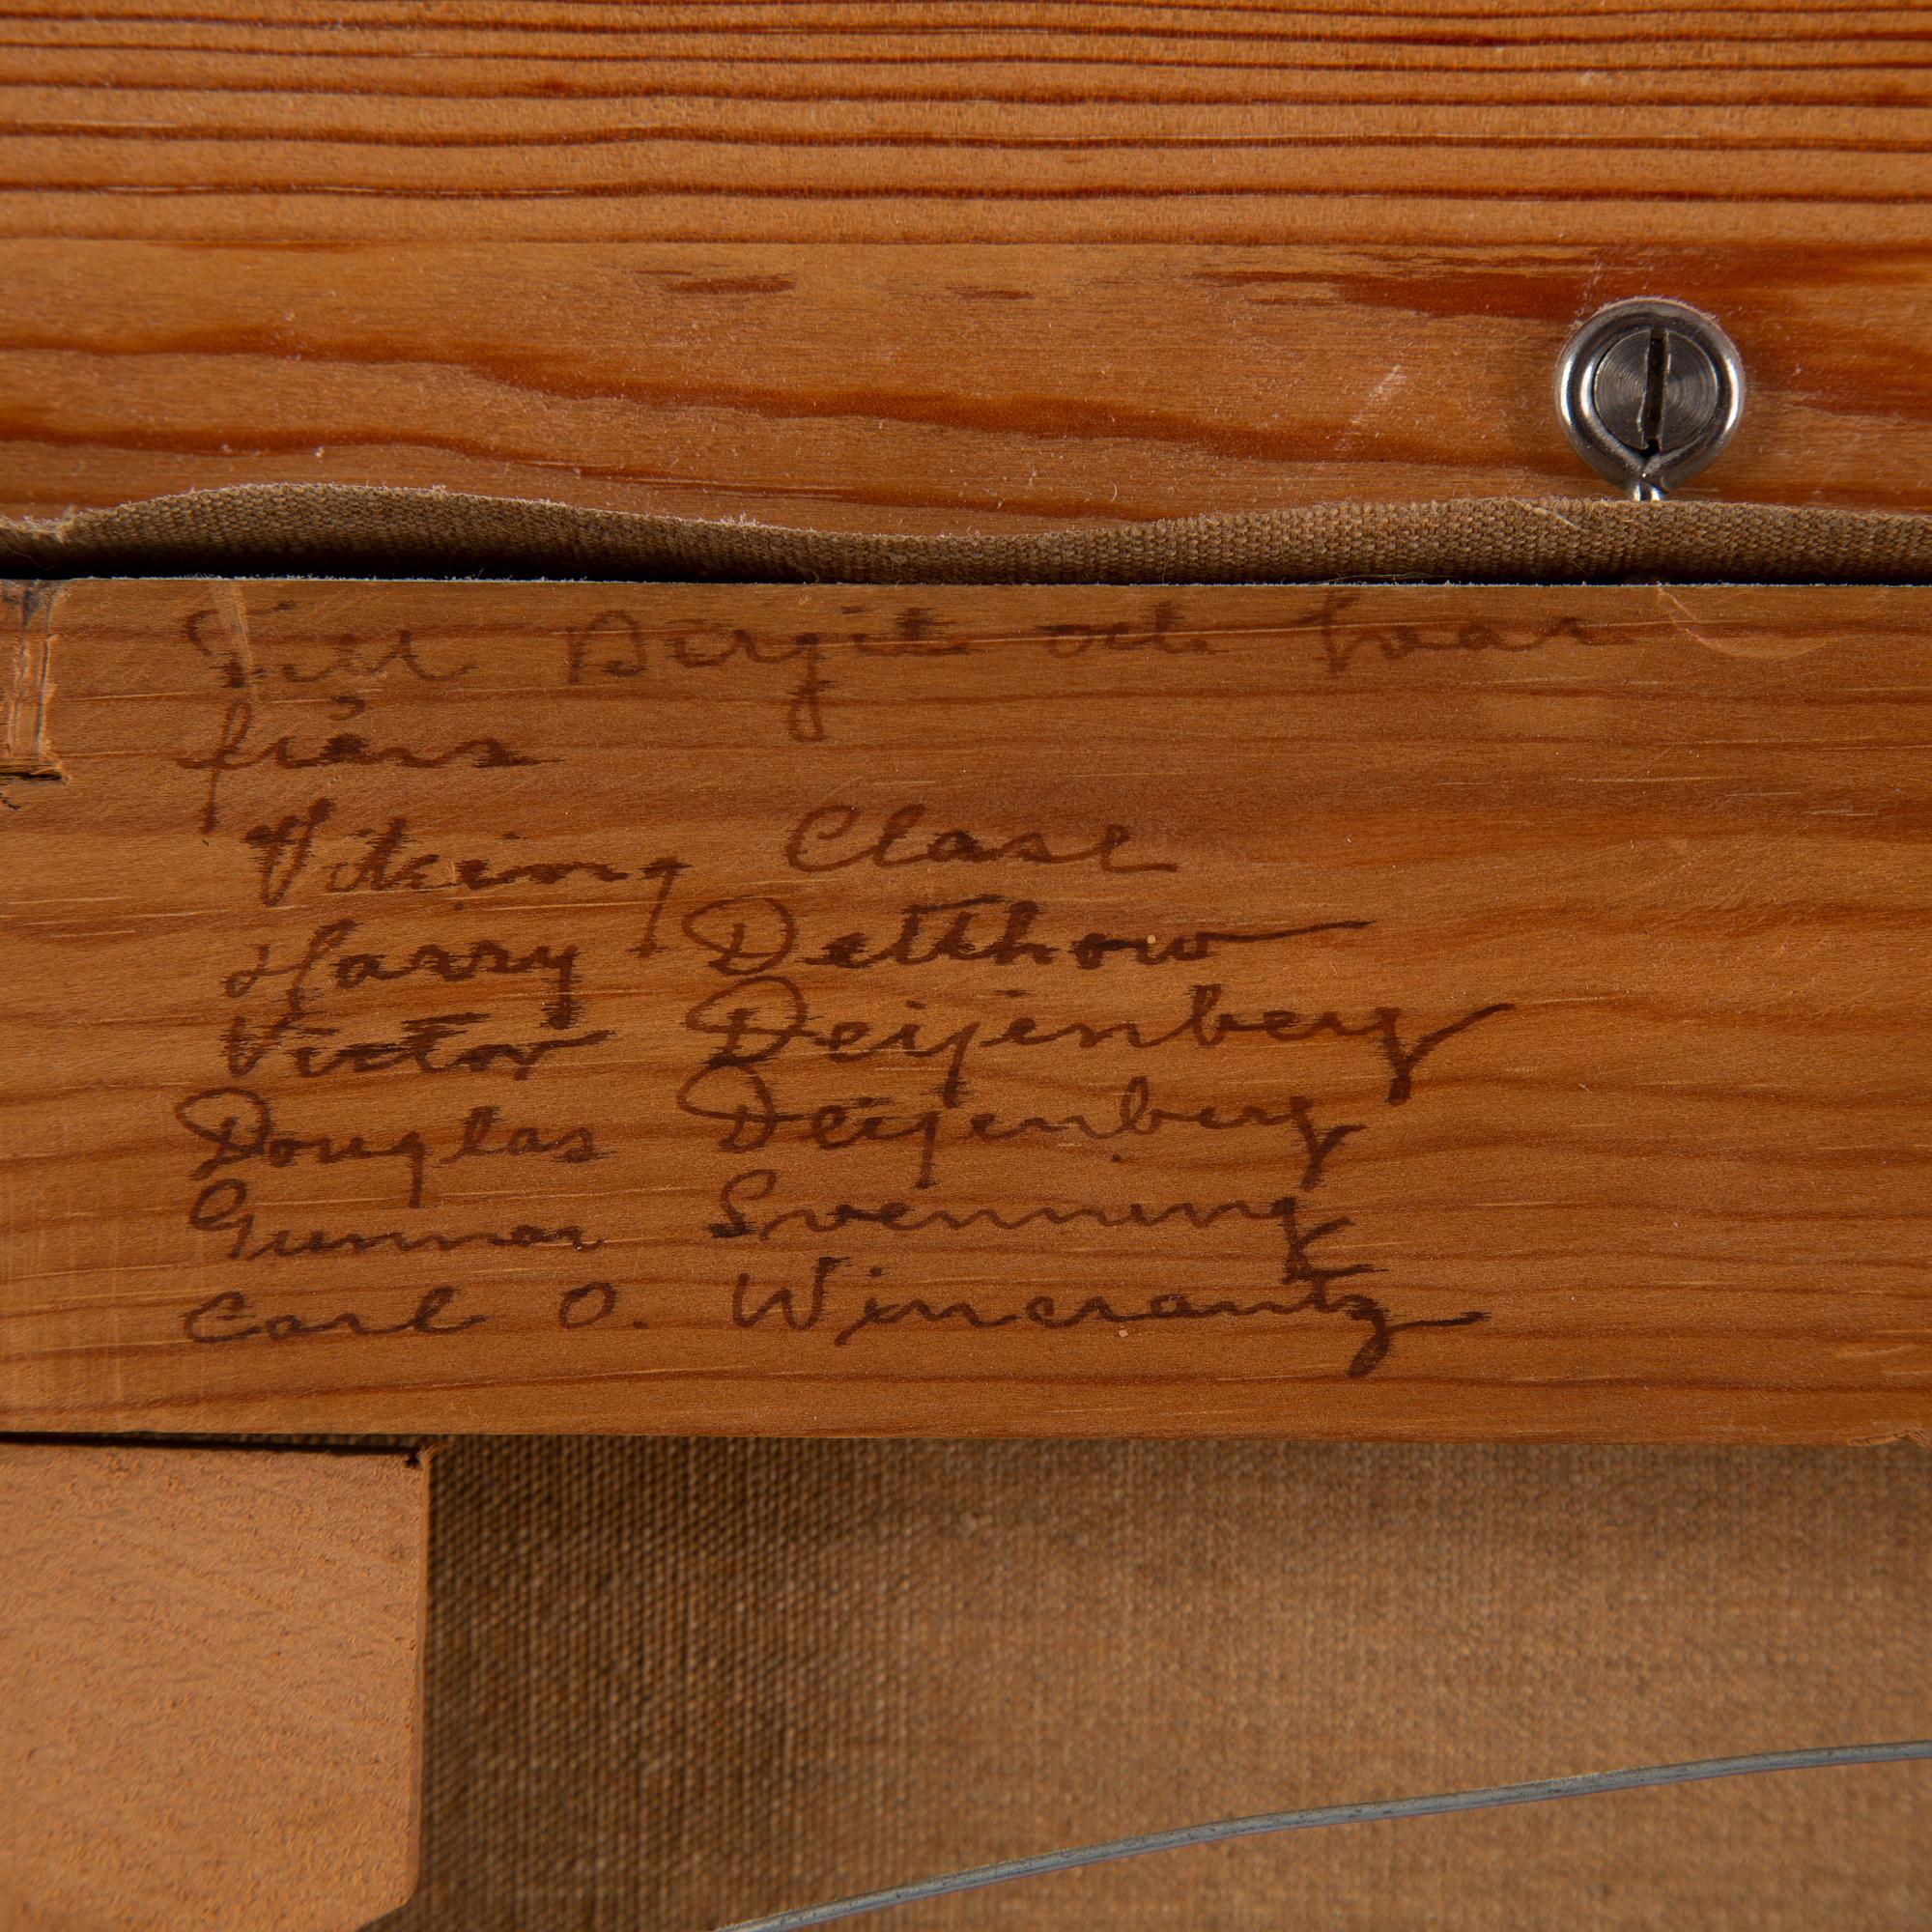 Till Birgit och Ivar
från
Viking Clase
Harry Detthow
Victor Deijenberg
Douglas Deijenberg
Gunnar Svenning
Carl O. Wincrantz